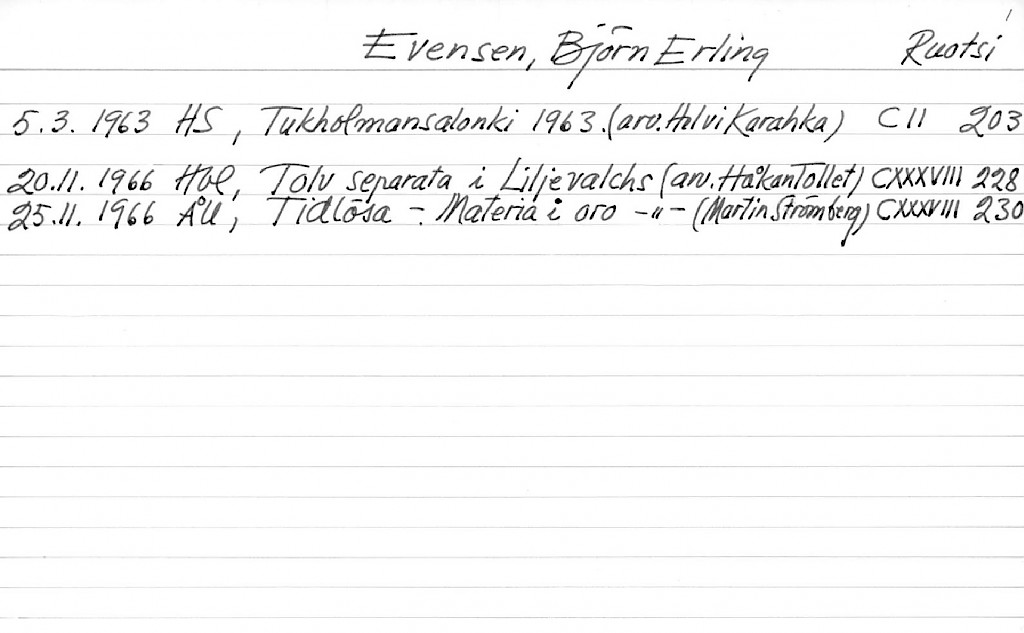 1
Evensen, Björn Erling Ruotsi
5.3. 1963 HS, Tukholmansalonki 1963. (arv. Helvi Karahka) CII 203
20.11. 1966 Hbl, Tolv separata i Liljevalchs (arv. Håkan Tollet) CXXXVIII 228
25.11. 1966 ÅU, Tidlösa - Materia i oro -"- (Martin Strömberg) CXXXVIII 230